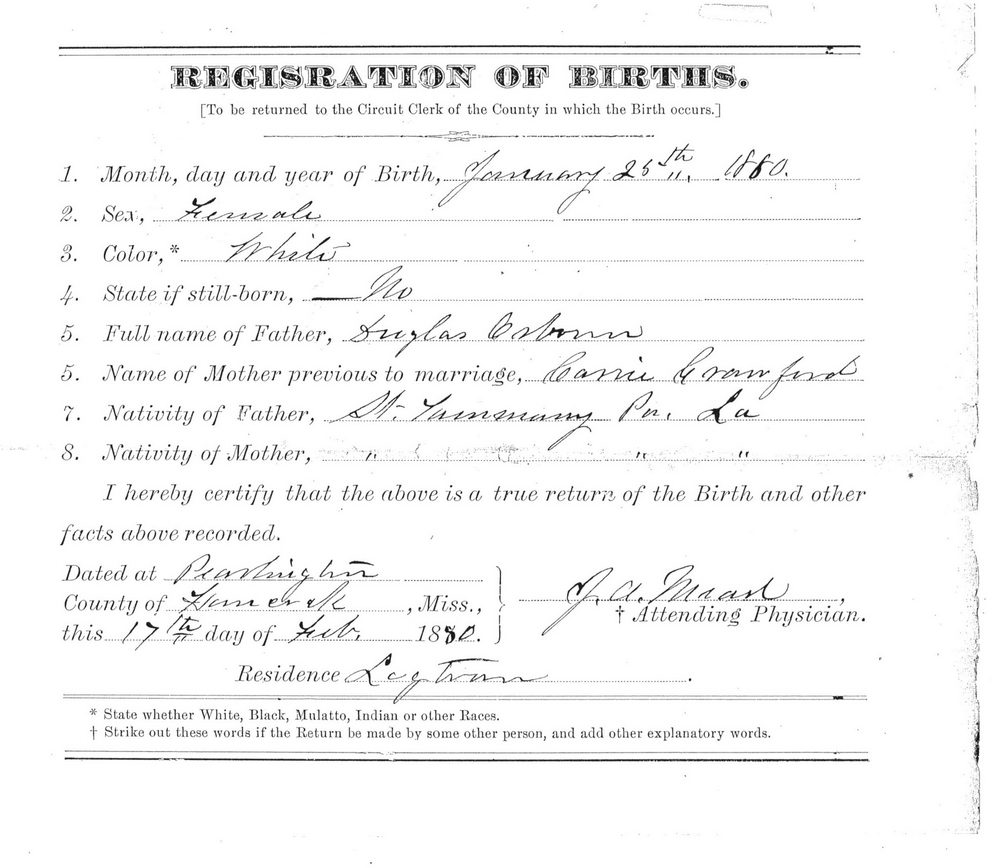 REGISRATION OF BIRTHS.
[To be returned to the Circuit Clerk of the County in which the Birth occurs.]
1. Month, day and year of Birth, January 25th 1880.
2. Sex, Female
3. Color,* White
4. State if still-born, No
5. Full name of Father, Duglas Osbourn
5. Name of Mother previous to marriage, Carrie Crawford
7. Nativity of Father, St. Tammany Pa. La
8. Nativity of Mother, " " "
I hereby certify that the above is a true return of the Birth and other
facts above recorded.
Dated at Pearlington
County of Hancock, Miss.,
this 17th day of Feb. 1880.
J. A. Mead,
† Attending Physician.
Residence Logtown.
* State whether White, Black, Mulatto, Indian or other Races.
† Strike out these words if the Return be made by some other person, and add other explanatory words.